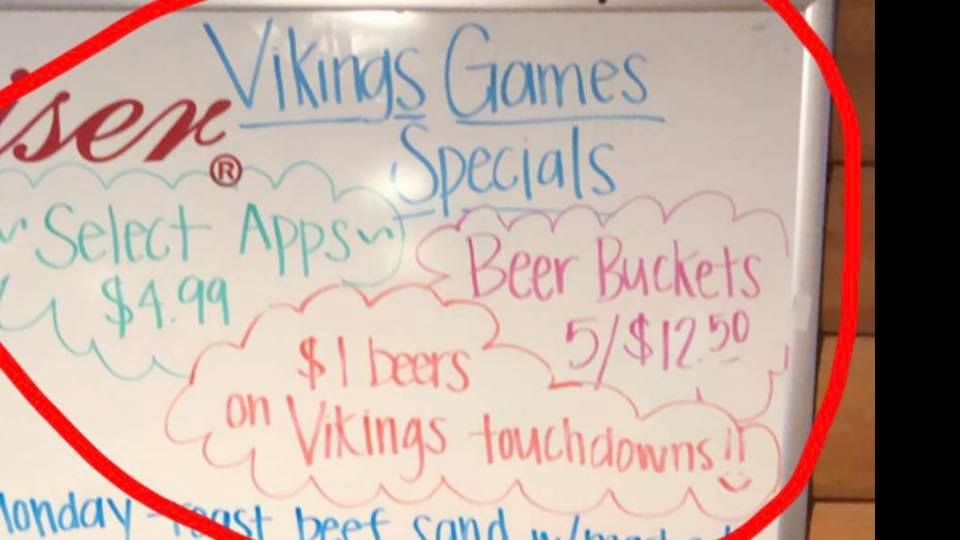 Vikings Games
Specials
iser®
~ Select Apps ~
$4.99
Beer Buckets
5/$12.50
$1 beers
on Vikings touchdowns!!
Monday - roast beef sand w/